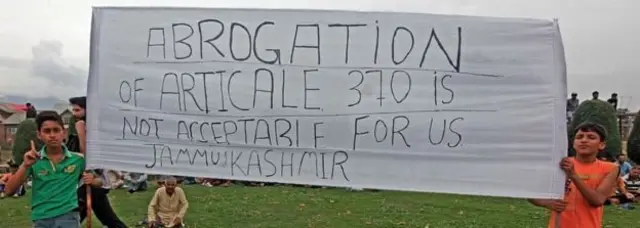 ABROGATiON
OF ARTICALE 370 iS
NOT ACCEPTABLE FOR US
JAMMU&KASHMIR